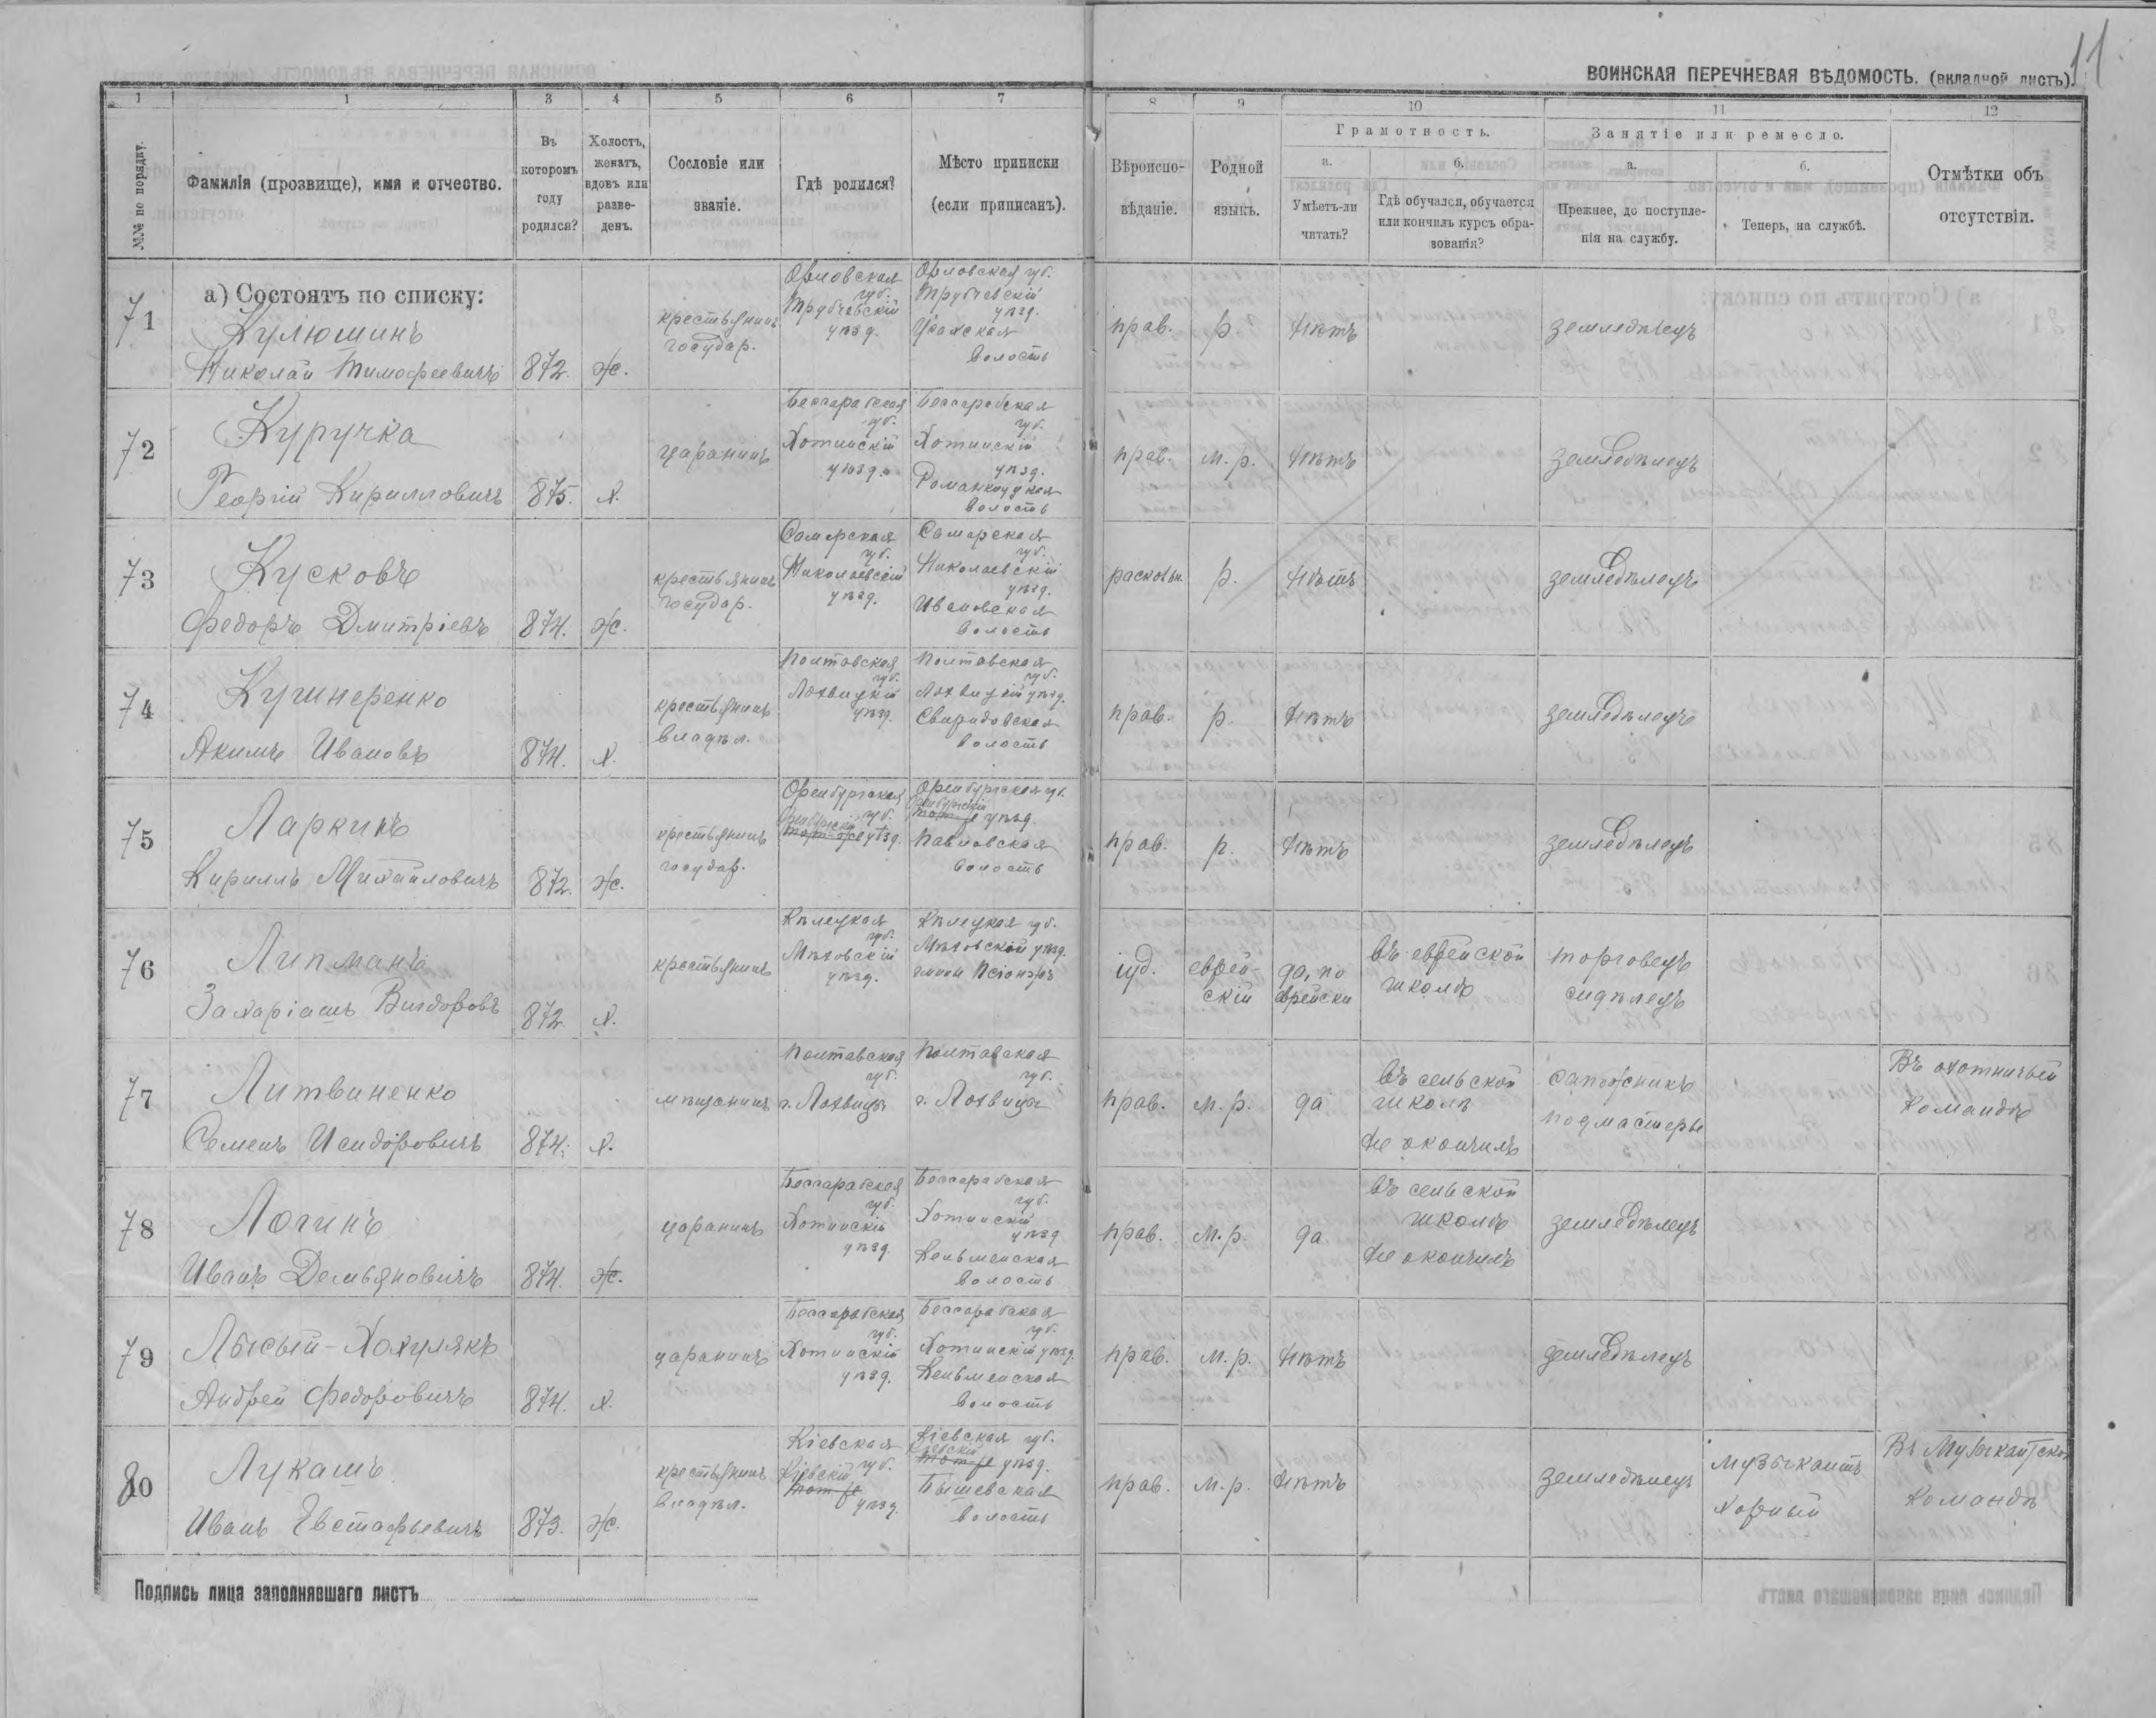 11
ВОИНСКАЯ ПЕРЕЧНЕВАЯ ВѢДОМОСТЬ. (вкладной листъ).
1 1 3 4 5 6 7 8 9 10 11 12
№№ по порядку.
Фамилія (прозвище), имя и отчество.
Въ которомъ году родился?
Холостъ, женатъ, вдовъ или разведенъ.
Сословіе или званіе.
Гдѣ родился?
Мѣсто приписки (если приписанъ).
Вѣроисповѣданіе.
Родной языкъ.
Грамотность.
а. Умѣетъ-ли читать?
б. Гдѣ обучался, обучается или кончилъ курсъ образованія?
Занятіе или ремесло.
а. Прежнее, до поступленія на службу.
б. Теперь, на службѣ.
Отмѣтки объ отсутствіи.
а) Состоятъ по списку:
71 Кулюшинъ Николай Тимофеевичъ 872. ж. крестьянинъ государ. Орловская губ. Трубчевскій уѣзд. Орловская губ. Трубчевскій уѣзд. волость прав. р. нѣтъ земледѣлецъ
72 Куручка Георгій Кирилловичъ 875. х. царанинъ Бессарабская губ. Хотинскій уѣзд. Бессарабская губ. Хотинскій уѣзд. Романкоуцкая волость прав. м. р. нѣтъ земледѣлецъ
73 Кусковъ Федоръ Дмитріевъ 874. ж. крестьянинъ государ. Самарская губ. Николаевскій уѣзд. Самарская губ. Николаевскій уѣзд. Ивановская волость р. нѣтъ земледѣлецъ
74 Кушнеренко Акимъ Ивановъ 874. х. крестьянинъ владѣл. Полтавская губ. Лохвицкій уѣзд. Полтавская губ. Лохвицкій уѣзд. Свиридовская волость прав. р. нѣтъ земледѣлецъ
75 Ларкинъ Кириллъ Михайловичъ 872. ж. крестьянинъ государ. Оренбургская губ. Оренбургскій тотъ-же уѣзд. Оренбургская губ. Оренбургскій тотъ-же уѣзд. Павловская волость прав. р. нѣтъ земледѣлецъ
76 Липманъ Захаріашъ Вигдоровъ 872. х. крестьянинъ Кѣлецкая губ. Мѣховскій уѣзд. Кѣлецкая губ. Мѣховскій уѣзд. гмины іуд. еврейскій да, по еврейски въ еврейской школѣ торговецъ сидѣлецъ
77 Литвиненко Семенъ Исидоровичъ 874. х. мѣщанинъ Полтавская губ. г. Лохвица Полтавская губ. г. Лохвица прав. м. р. да въ сельской школѣ не окончилъ сапожникъ подмастерье Въ охотничьей командѣ
78 Логинъ Иванъ Демьяновичъ 874. ж. царанинъ Бессарабская губ. Хотинскій уѣзд. Бессарабская губ. Хотинскій уѣзд. Кельменская волость прав. м. р. да въ сельской школѣ не окончилъ земледѣлецъ
79 Лысый-Хохулякъ Андрей Федоровичъ 874. х. царанинъ Бессарабская губ. Хотинскій уѣзд. Бессарабская губ. Хотинскій уѣзд. Кельменская волость прав. м. р. нѣтъ земледѣлецъ
80 Лукашъ Иванъ Евстафьевичъ 873. ж. крестьянинъ владѣл. Кіевская губ. Кіевскій тотъ-же уѣзд. Кіевская губ. Кіевскій тотъ-же уѣзд. Бышевская волость прав. м. р. нѣтъ земледѣлецъ музыкантъ хорный Въ Музыкантской командѣ
Подпись лица заполнявшаго листъ